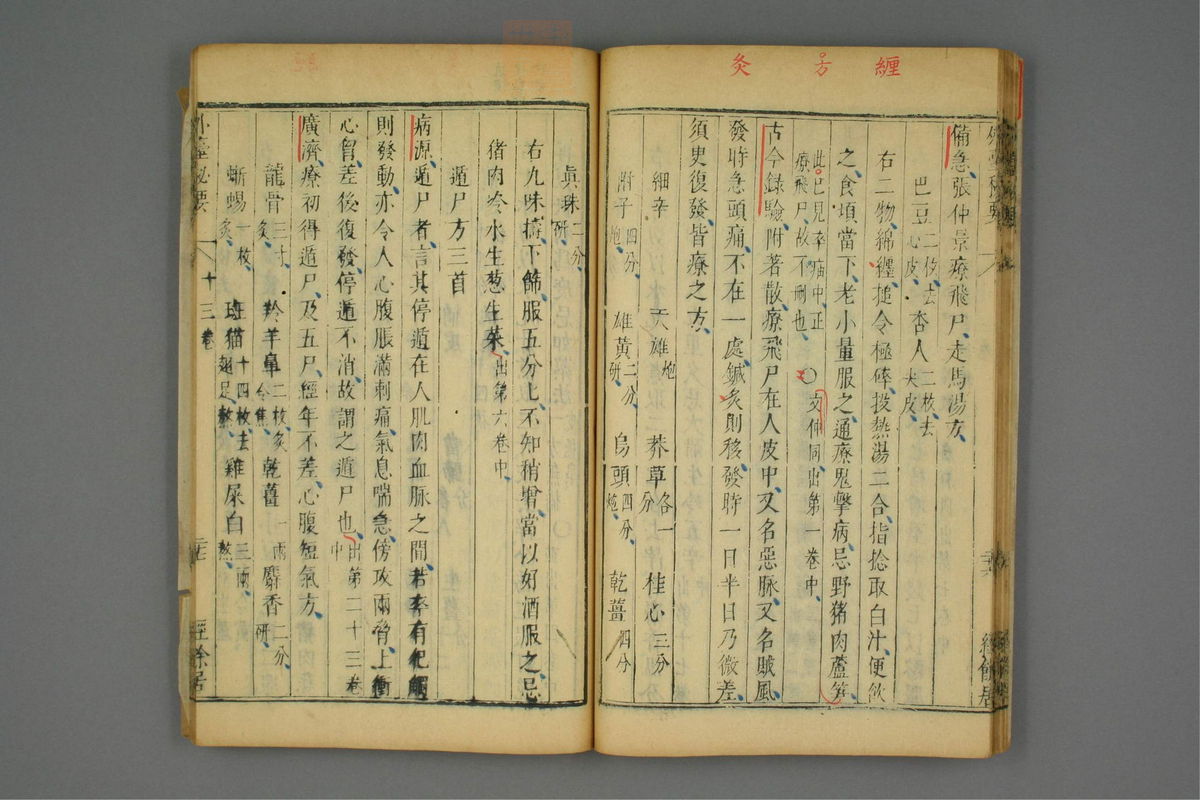 纏 方 灸
備急張仲景療飛尸走馬湯方
巴豆二枚去心皮 杏人二枚去尖皮
右二物綿纏搥令極碎投熱湯二合指捻取白汁便飲
之食頃當下老小量服之通療鬼擊病忌野猪肉蘆笋
此已見卒疝中正療飛尸故不刪也○文仲同出第一卷中
古今錄驗附著散療飛尸在人皮中又名惡脉又名賊風
發時急頭痛不在一處鍼灸則移發時一日半日乃微差
須臾復發皆療之方
細辛 天雄炮 莽草各一分 桂心三分
附子四分炮 雄黃二分研 烏頭四分炮 乾薑四分
眞珠二分研
右九味擣下篩服五分匕不知稍增當以好酒服之忌
猪肉冷水生葱生菜出第六卷中
遁尸方三首
病源遁尸者言其停遁在人肌肉血脉之間若卒有犯觸
則發動亦令人心腹脹滿刺痛氣息喘急傍攻兩脅上衝
心胷差後復發停遁不消故謂之遁尸也出第二十三卷中
廣濟療初得遁尸及五尸經年不差心腹短氣方
龍骨三寸灸 羚羊鼻二枚灸令焦 乾薑一兩 麝香二分研
蜥蜴一枚灸 班猫十四枚去翅足熬 雞屎白三兩熬
外臺秘要 十三卷 二七 經餘居